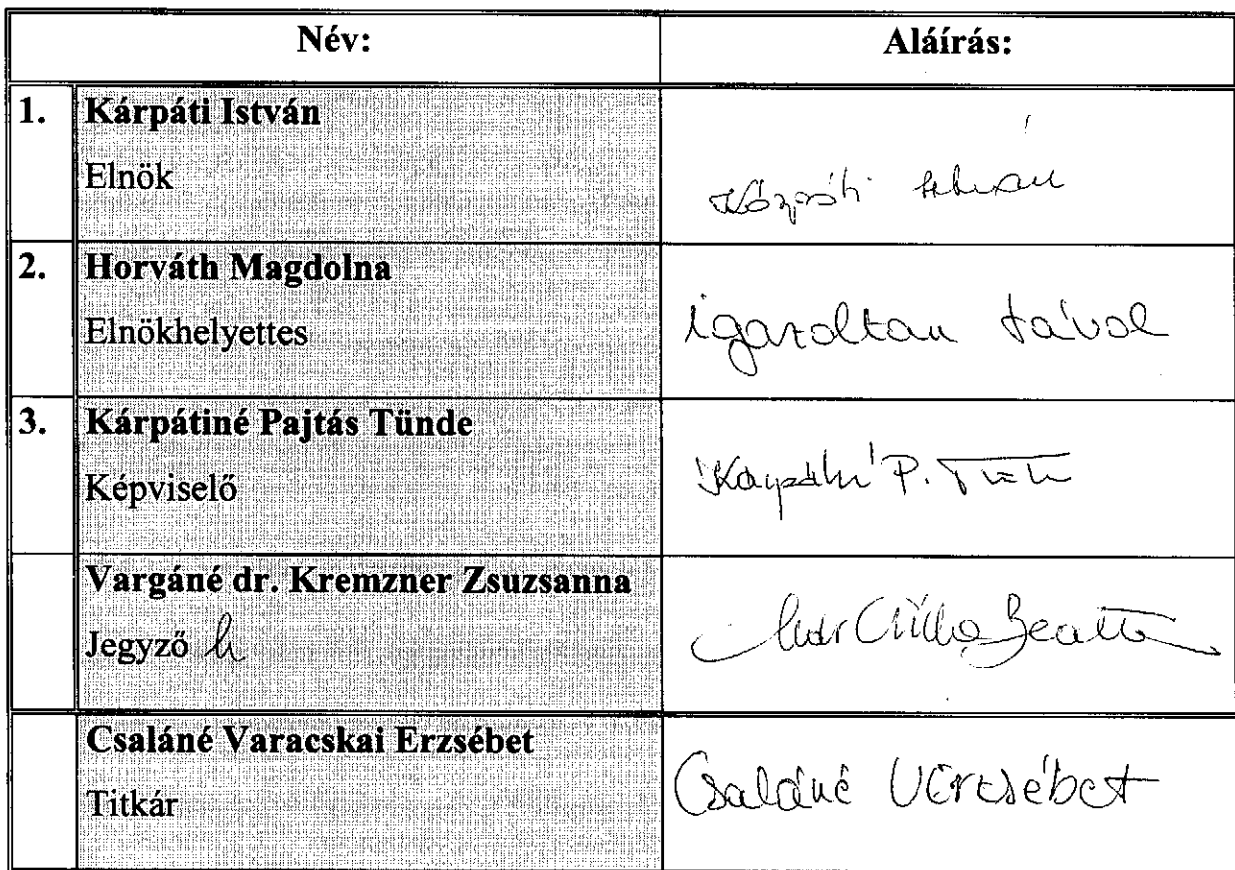 Név: Aláírás:
1. Kárpáti István
Elnök
Kárpáti István
2. Horváth Magdolna
Elnökhelyettes igazoltan távol
3. Kárpátiné Pajtás Tünde
Képviselő
Kárpátiné P. Tünde
Vargáné dr. Kremzner Zsuzsanna
Jegyző h
Beatta
Csaláné Varacskai Erzsébet
Titkár
Csaláné VErzsébet